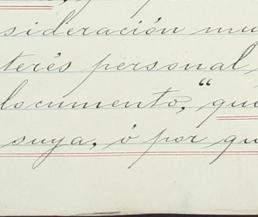 sideración mu
terés personal
documento, "qui
suya, ó por qu